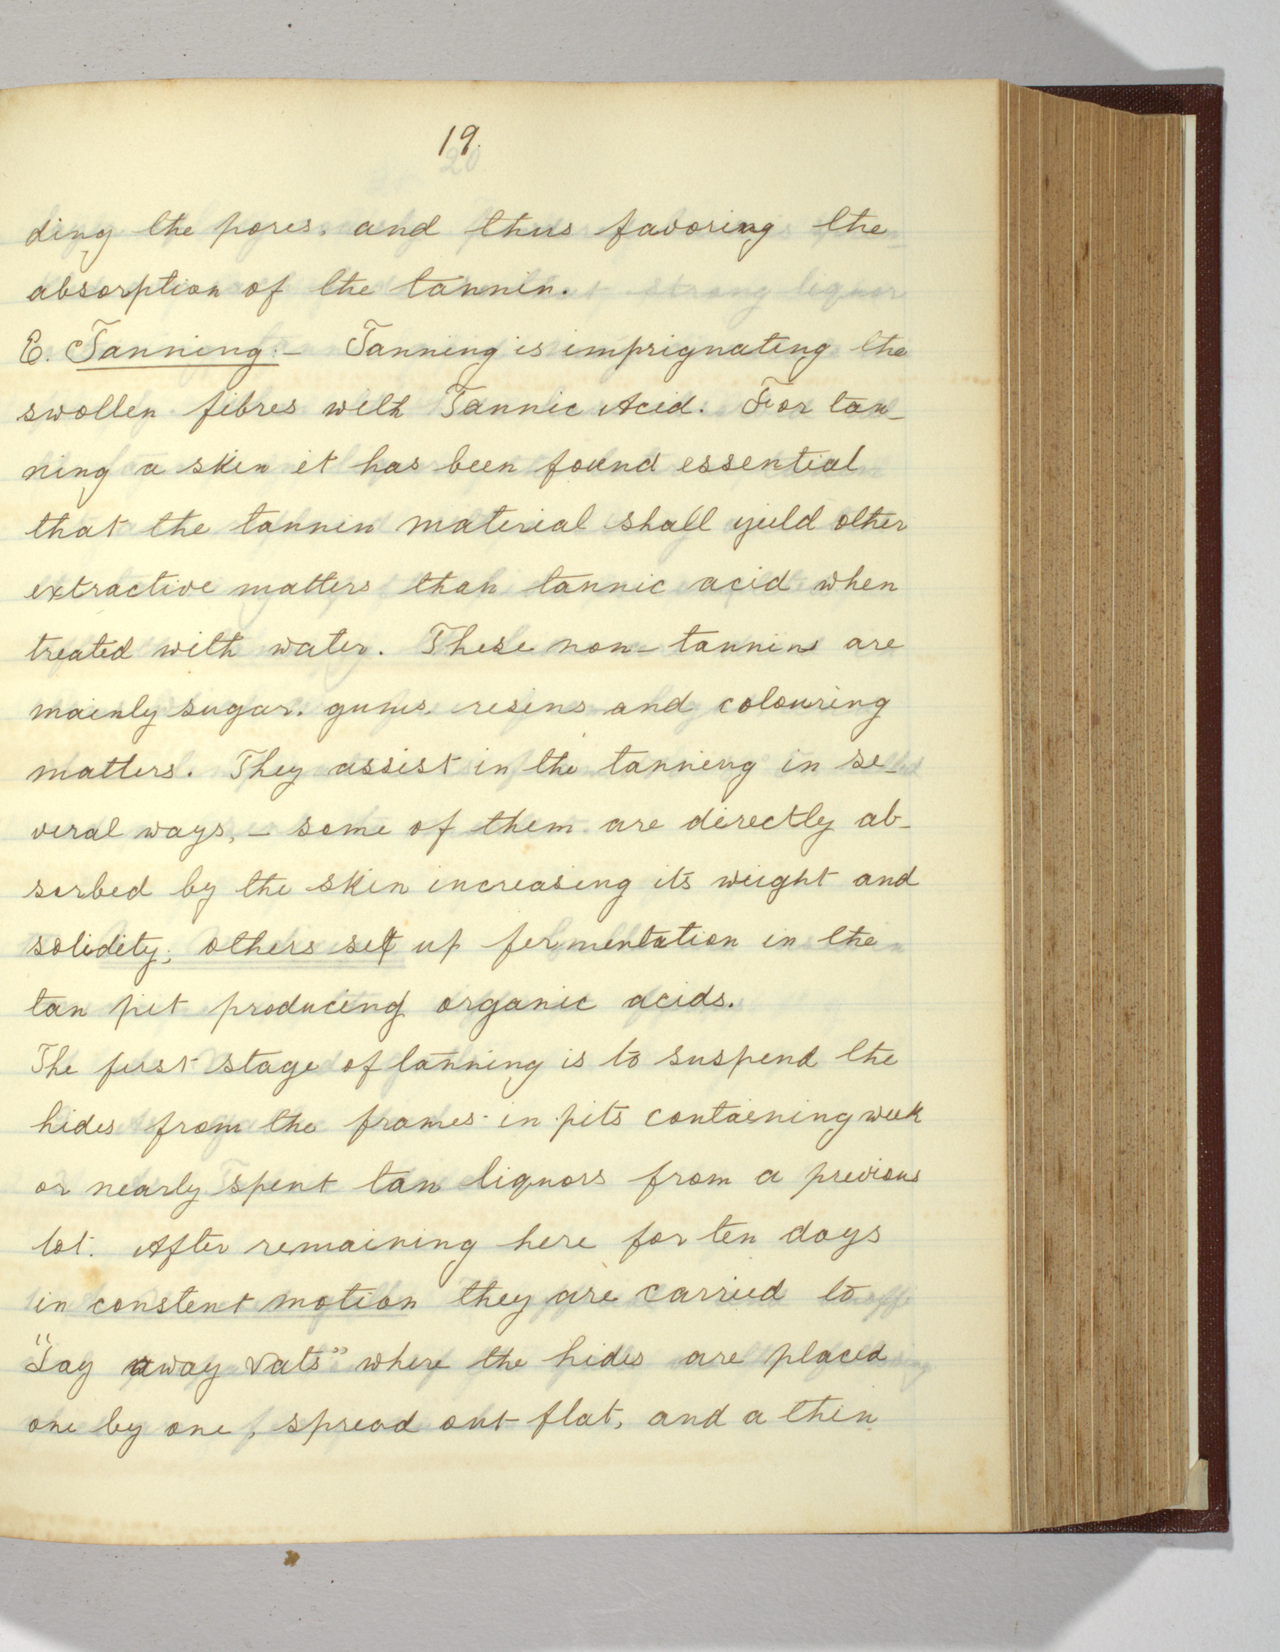 19.
ding the pores. and thus favoring the
absorption of the tannin.
E. Tanning:- Tanning is imprignating the
swollen fibres with Tannic Acid. For tan-
ning a skin it has been found essential
that the tannin material shall yield other
extractive matters than tannic acid when
treated with water. These non-tannins are
mainly sugar. gums. resins and colouring
matters. They assist in the tanning in se-
veral ways,- some of them are directly ab-
sorbed by the skin increasing its weight and
solidity; others set up fermentation in the
tan pit producing organic acids.
The first stage of tanning is to suspend the
hides from the frames in pits containing week
or nearly spent tan liquors from a previous
lot. After remaining here for ten days
in constent motion they are carried to
"Lay away vats" where the hides are placed
one by one, spread out flat, and a thin